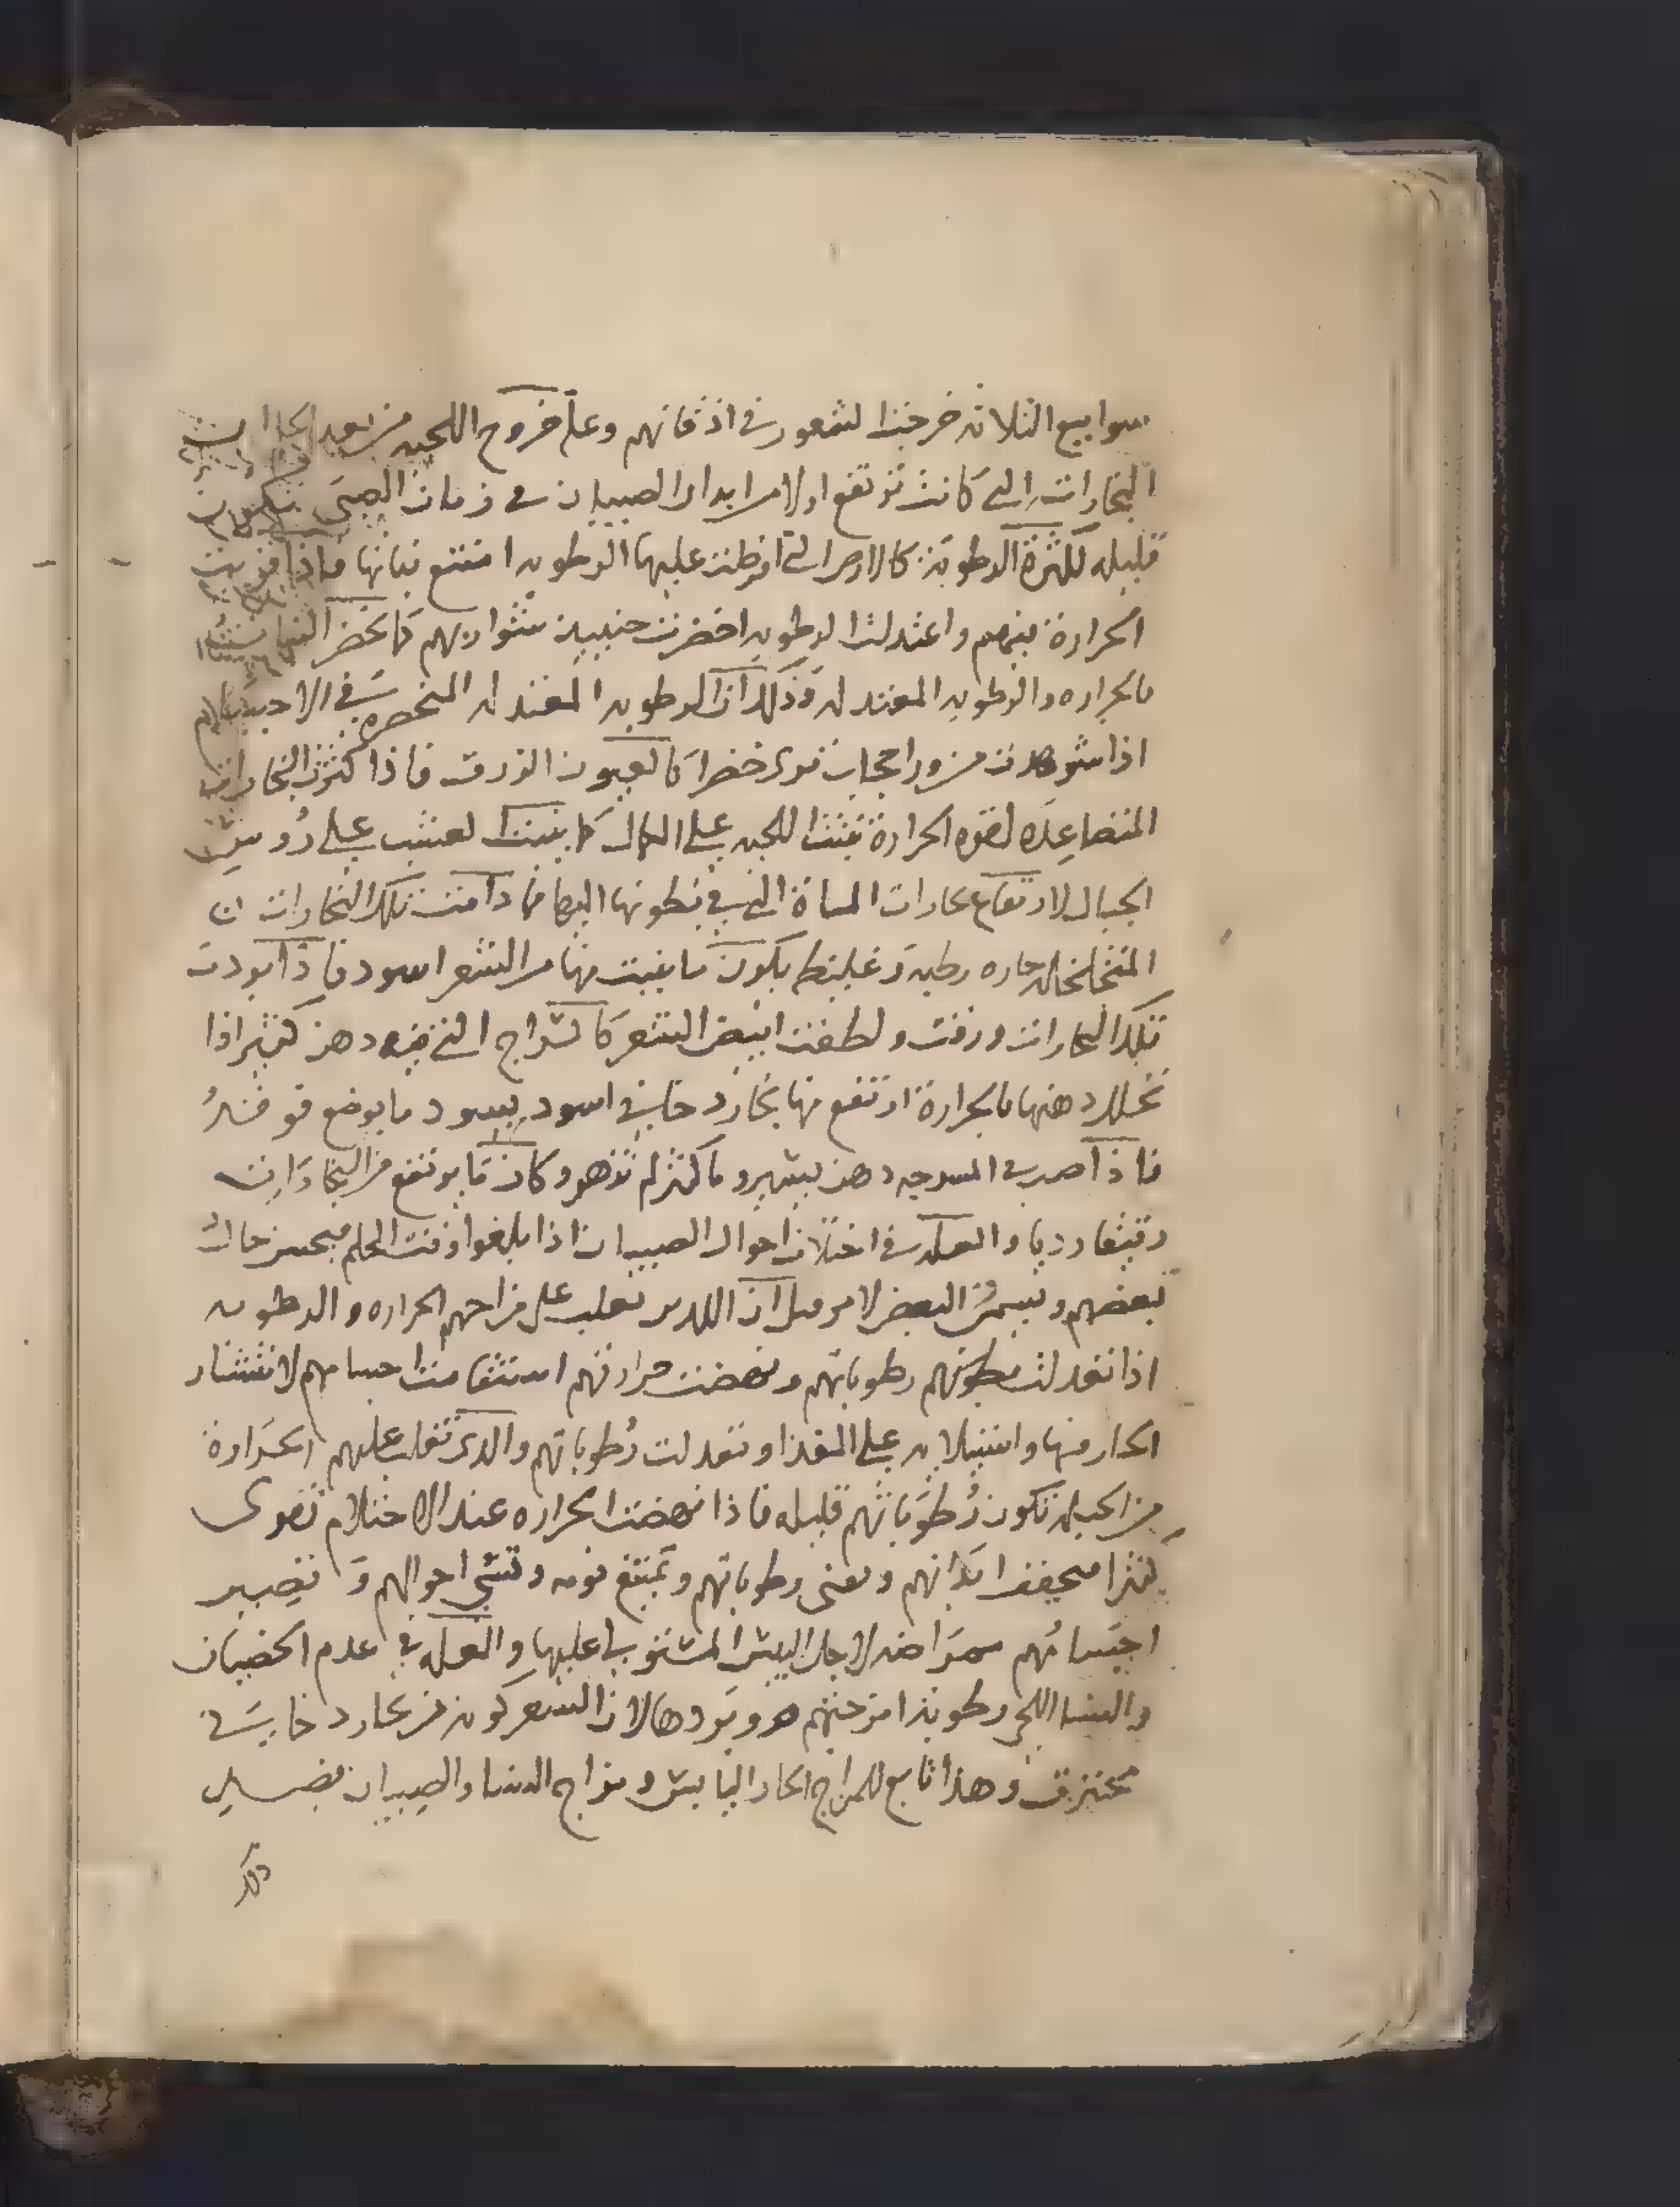 سوابيع الثلاثه خرجت الشعور في اذقانهم وعلة خروج اللحيه من بعد
البخارات التي كانت ترتفع اولا من ابدان الصبيان في زمان الصبى تكون
قليله لكثرة الرطوبة كالارض التي افرطت عليها الرطوبه امتنع نباتها فاذا قويت
الحرارة فيهم واعتدلت الرطوبه اخضرت حينيذ شواربهم كما تخضر
بالحراره والرطوبه المعتدله وذلك ان الرطوبه المعتدله المنحصره في الاجسام
اذا شوهدت من ورا حجاب ترى خضرا كالعيون الزرق فاذا كثرت البخارات
المتصاعده لقوه الحرارة نبتت اللحيه على الكمال كما ينبت العشب على رُوس
الجبال لارتفاع بخارات المياة التي في بطونها اليها فما دامت تلك البخارات
المتخلخله حاره رطبه وغليظه يكون ما ينبت منها من الشعر اسود فاذا بردت
تلك البخارات ورقت ولطفت ابيض الشعر كالسراج التي فيه دهن كثير اذا
تحلل دهنها بالحرارة ارتفع منها بخار دخاني اسود يسود ما يوضع فوقه
فاذا صر في المسرجه دهن يسير وماكثر لم تزهر وكان ما يرتفع من البخارات
رقيقا رديا والعله في اختلاف احوال الصبيان اذا بلغوا وقت الحلم فيحسن حال
بعضهم ويسمج البعض لامر قيل ان اللذين تغلب على مزاجهم الحراره والرطوبه
اذا تعدلت رطوباتهم ونهضت حرارتهم استقامت اجسامهم لانتشار
الحار منها واستيلايه على الغذا وتعدلت رُطوباتهم والذى تغلب عليهم الحَرارة
من الجبله تكون رُطوباتهم قليله فاذا نهضت الحراره عند الاحتلام تقوى
كثرا فيجفف ابدانهم وتفنى رطوباتهم ويمتنع نومه وتشى احوالهم وتصير
اجسامُهم ممراضه لاجل اليبس المستولي عليها والعله في عدم الخصيان
والنسا اللحى رطوبة امزجتهم هو وبردها لان الشعر كونه من بخار دخاني
محترق وهذا تابع للمزاج الحار اليابس ومزاج النسا والصبيان بضد
ذلك